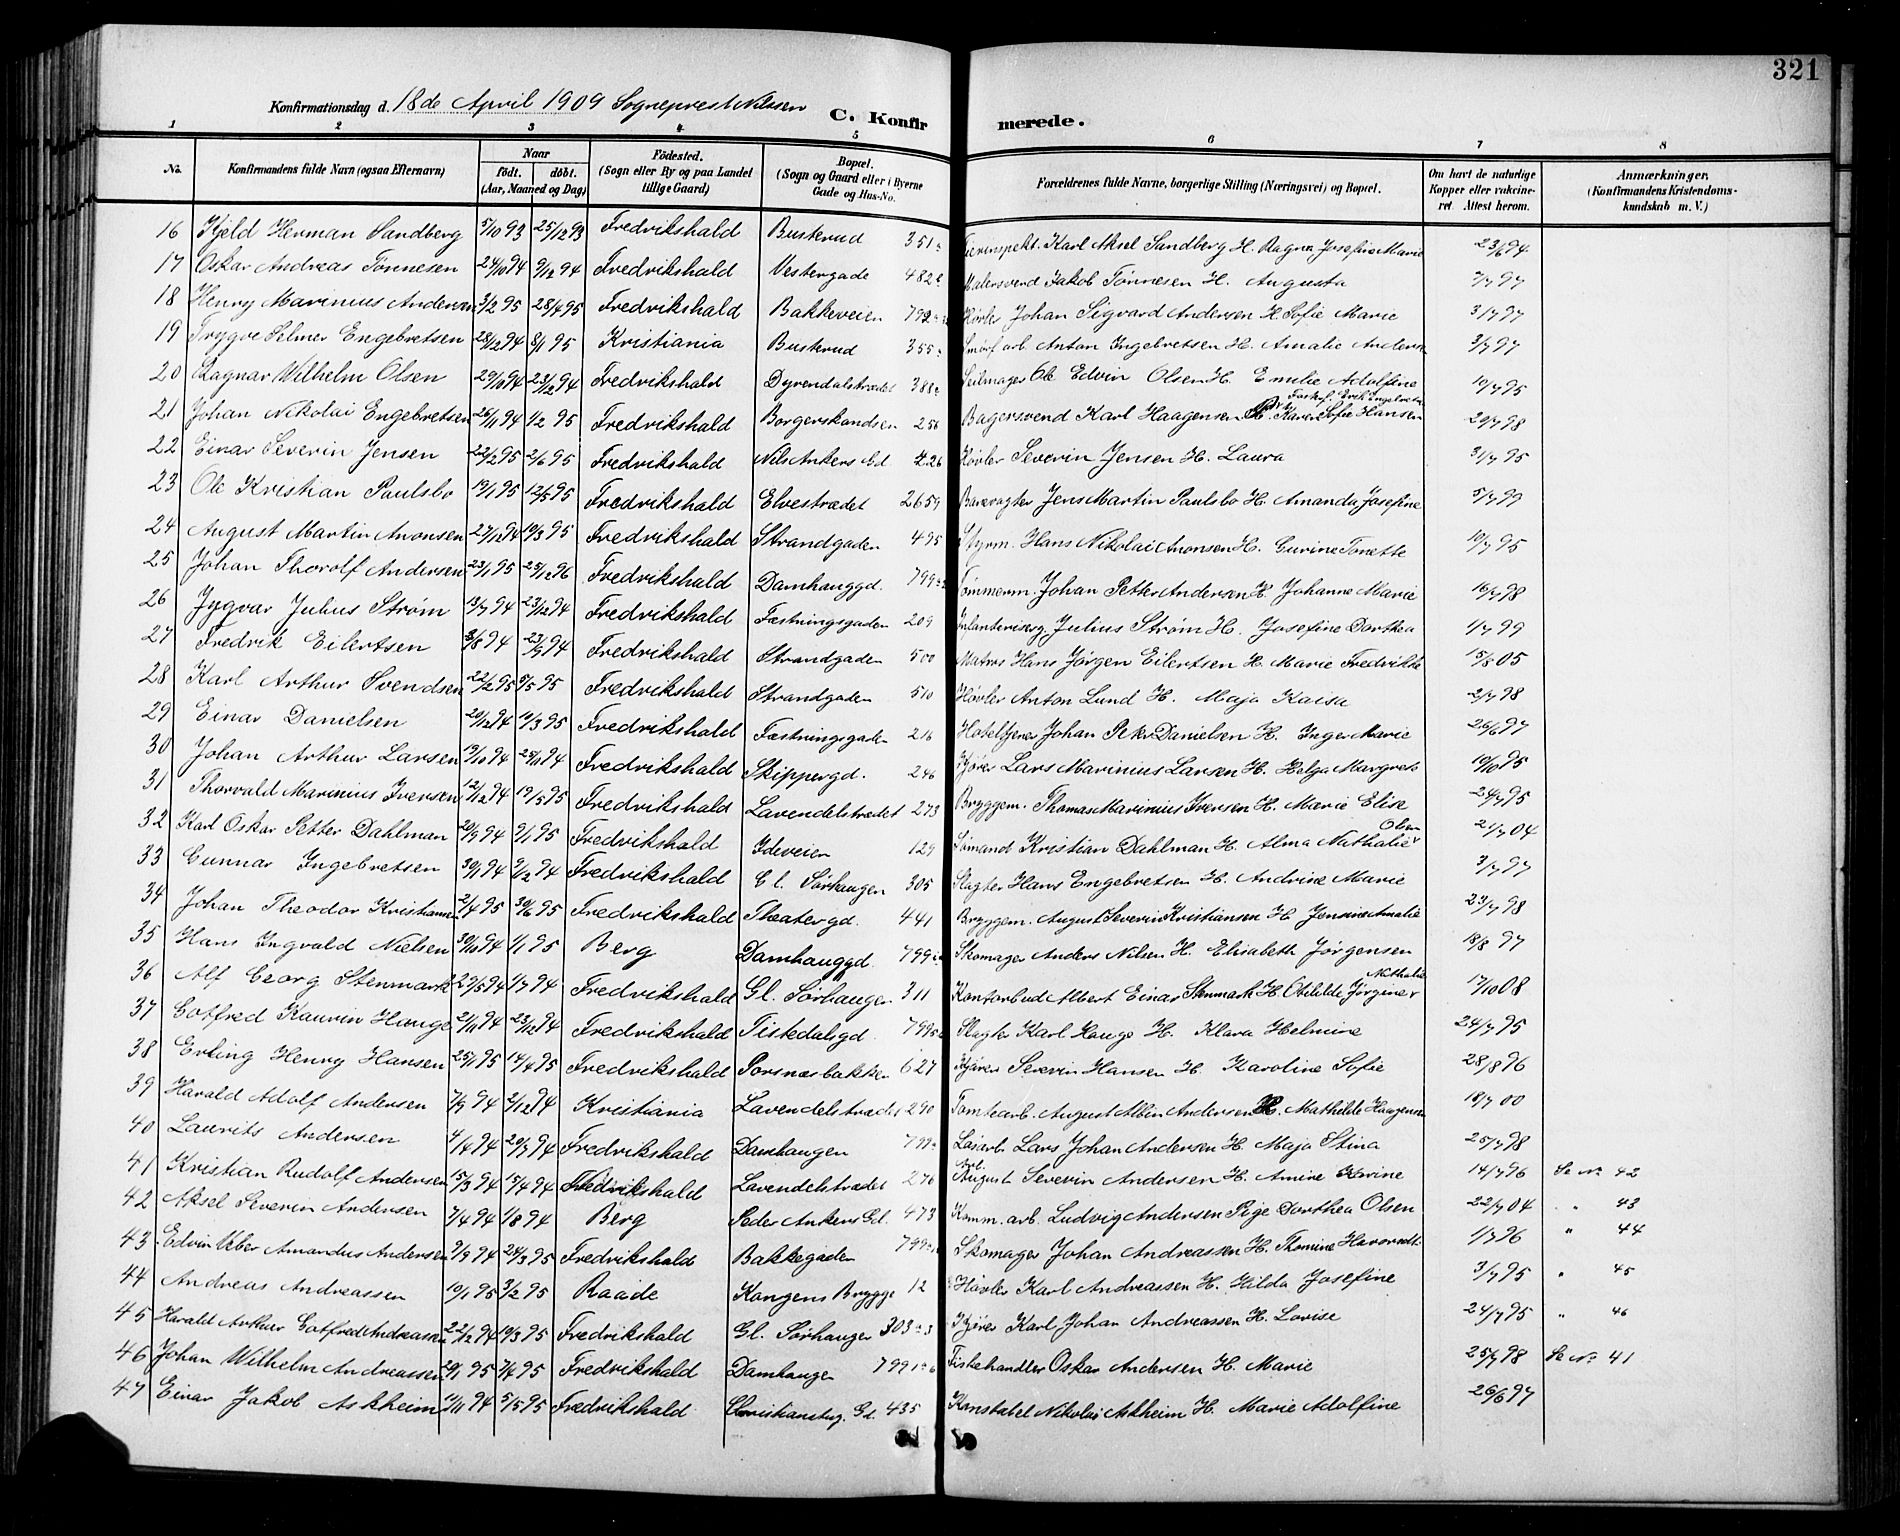 321
Konfirmationsdag d. 18de April 1909 Sogneprest Nilssen
C. Konfirmerede.
1 2 3 4 5 6 7 8
No. Konfirmandens fulde Navn (ogsaa Efternavn) Naar født. døbt. (Aar, Maaned og Dag) Fødested. (Sogn eller By og paa Landet tillige Gaard) Bopæl. (Sogn og Gaard eller i Byerne Gade og Hus-No. Forældrenes fulde Navne, borgerlige Stilling (Næringsvei) og Bopæl. Om havt de naturlige Kopper eller vakcineret. Attest herom. Anmærkninger. (Konfirmandens Kristendomskundskab m. V.)
16 Kjeld Herman Sandberg 5/10 93 25/12 93 Fredrikshald Buskrud 351 Karl Aksel Sandberg H. Ragna Josefine Marie 23/6 94
17 Oskar Andreas Tønnesen 24/10 94 9/12 94 Fredrikshald Vestergade 482 Malersvend Jakob Tønnesen H. Augusta 7/7 97
18 Henry Marinius Andersen 3/2 95 28/4 95 Fredrikshald Bakkeveien 799 Høvler Johan Sigvard Andersen H. Sofie Marie 3/7 97
19 Trygve Selmer Engebretsen 28/12 94 8/1 95 Kristiania Buskrud 355 arb. Anton Ingebretsen H. Amalie Andersen 3/7 97
20 Ragnar Wilhelm Olsen 29/10 94 23/12 94 Fredrikshald Dyrendalstrædet 388 Seilmager Ole Edvin Olsen H. Emilie Adolfine 10/7 95
21 Johan Nikolai Engebretsen 26/11 94 1/2 95 Fredrikshald Borgerskandsen 256 Bagersvend Karl Haagensen H. Karen Sofie Hansen 29/7 98
22 Einar Severin Jensen 22/2 95 2/6 95 Fredrikshald Nils Ankers Gd 226 Høvler Severin Jensen H. Laura 31/7 95
23 Ole Kristian Paulsbo 19/1 95 12/5 95 Fredrikshald Elvestrædet 2659 Banevagter Jens Martin Paulsbo H. Amanda Josefine 5/7 99
24 August Martin Aronsen 27/12 94 10/3 95 Fredrikshald Strandgaden 495 Styrm. Hans Nikolai Aronsen H. Gurine Tonette 10/7 95
25 Johan Thorolf Andersen 23/1 95 25/12 96 Fredrikshald Damhauggd. 799 Tømmerm. Johan Petter Andersen H Johanne Marie 16/7 98
26 Yngvar Julius Strøm 13/7 94 23/12 94 Fredrikshald Fæstningsgaden 209 Julius Strøm H. Josefine Dorthea 1/7 99
27 Fredrik Eilertsen 3/8 94 23/9 94 Fredrikshald Strandgaden 500 Matros Hans Jørgen Eilertsen H. Marie Fredrikke 15/5 05
28 Karl Arthur Svendsen 22/2 95 5/5 95 Fredrikshald Strandgaden 510 Høvler Anton Lund H. Maja Kaisa 2/7 98
29 Einar Danielsen 20/12 94 10/3 95 Fredrikshald Fæstningsgaden 216 Hoteltjener Johan Peter Danielsen H. Inger Marie 26/6 97
30 Johan Arthur Larsen 19/10 94 25/11 94 Fredrikshald Skippergd. 246 Kjører Lars Marinius Larsen H. Helga Margrete 19/10 95
31 Thorvald Marinius Iversen 12/12 94 19/5 95 Fredrikshald Lavendelstrædet 273 Bryggem. Thomas Marinius Iversen H. Marie Elise 24/7 95
32 Karl Oskar Petter Dahlman 20/9 94 9/1 95 Fredrikshald Ideveien 129 Sømand Kristian Dahlman H. Alma Nathalie Olsen 21/7 04
33 Gunnar Ingebretsen 30/1 94 9/12 94 Fredrikshald Gl. Sørhaugen 305 Slagter Hans Engebretsen H. Andrine Marie 3/7 97
34 Johan Theodor Kristiansen 2/4 95 30/6 95 Fredrikshald Theatergd. 441 Bryggem. August Severin Kristiansen H Jennine Amalie 23/7 98
35 Hans Ingvald Nielsen 30/10 94 1/1 95 Berg Damhauggd. 799 Skomager Anders Nilsen H. Elisabeth Jørgensen 18/8 97
36 Alf Georg Stenmark 29/5 94 1/7 94 Fredrikshald Gl. Sørhaugen 311 Kontorbud Albert Einar Stenmark H. Otililde Jørgine Nathalie 17/10 08
37 Gotfred Kaurin Hauge 21/11 94 23/12 94 Fredrikshald Tistedalsgd. 799 Slagter Karl Hauge H. Klara Helmine 24/7 95
38 Erling Henry Hansen 25/1 95 14/4 95 Fredrikshald Porsnæsbakken 627 Kjører Severin Hansen H. Karoline Sofie 28/8 96
39 Harald Adolf Andersen 7/9 94 2/12 94 Kristiania Lavendelstrædet 290 Tomtearb. August Albin Andersen H. Mathilde Haagensen 18/7 00
40 Laurits Andersen 4/4 94 29/7 94 Fredrikshald Damhaugen 799 Løsarb. Lars Johan Andersen H. Maja Stina 25/7 98
41 Kristian Rudolf Andersen 15/3 94 15/4 94 Fredrikshald Lavendelstrædet 276 Arb. August Severin Andersen H. Amine Karine 14/7 96 Se No 42
42 Aksel Severin Andersen 7/4 94 1/8 94 Berg Peder Ankers Gd. 473 Komm. arb. Ludvig Andersen Pige Dorthea Olsen 22/7 04 " 43
43 Edvin Amandus Andersen 9/9 94 24/3 95 Fredrikshald Bakkegaden 799 Skomager Johan Andreassen H. Thomine 1/7 96 " 44
44 Andreas Andreassen 10/1 95 3/2 95 Raade Kongens Brygge 12 Høvler Karl Andreassen H. Hilda Josefine 3/7 95 " 45
45 Harald Arthur Gotfred Andreassen 22/12 94 10/3 95 Fredrikshald Gl. Sørhaugen 303 Kjører Karl Johan Andreassen H. Lovise 24/7 95 " 46
46 Johan Wilhelm Andreassen 20/1 95 7/4 95 Fredrikshald Damhaugen 799 Fiskehandler Oskar Andersen H. Marie 25/7 98 Se No 41
47 Einar Jakob Askheim 11/11 94 5/5 95 Fredrikshald Christiansteg. Gd. 435 Konstabel Nikolai Askheim H. Marie Adolfine 26/6 97